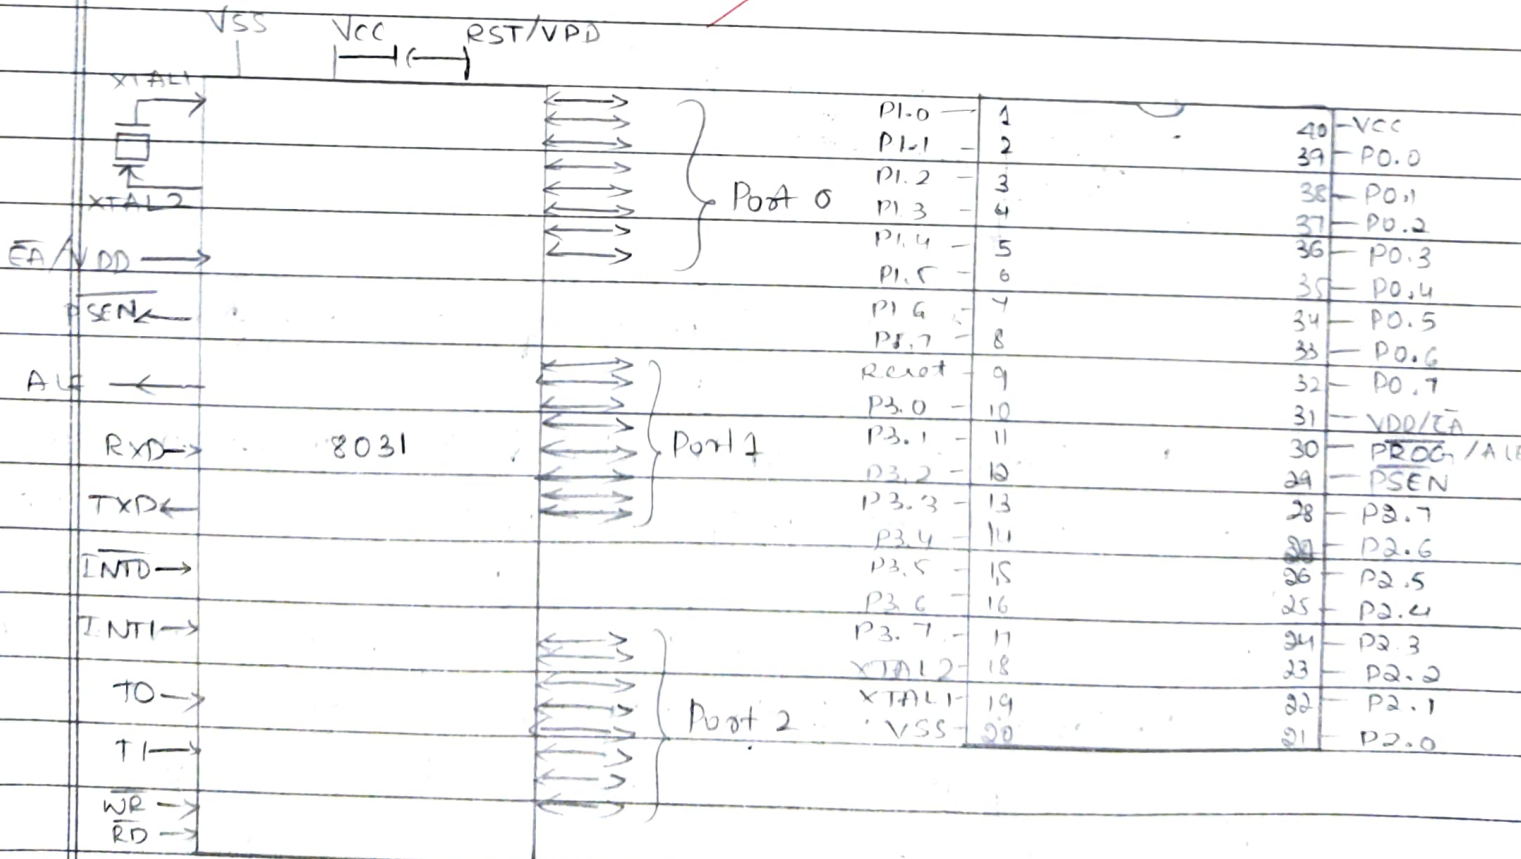 VSS VCC RST/VPD
XTAL1
XTAL2
EA/VDD
PSEN
ALE
RXD
TXD
INT0
INT1
T0
T1
WR
RD
8031
Port 0
Port 1
Port 2
P1.0 1
P1.1 2
P1.2 3
P1.3 4
P1.4 5
P1.5 6
P1.6 7
P1.7 8
Reset 9
P3.0 10
P3.1 11
P3.2 12
P3.3 13
P3.4 14
P3.5 15
P3.6 16
P3.7 17
XTAL2 18
XTAL1 19
VSS 20
40 VCC
39 P0.0
38 P0.1
37 P0.2
36 P0.3
35 P0.4
34 P0.5
33 P0.6
32 P0.7
31 VDD/EA
30 PROG/ALE
29 PSEN
28 P2.7
P2.6
26 P2.5
25 P2.4
24 P2.3
23 P2.2
22 P2.1
21 P2.0